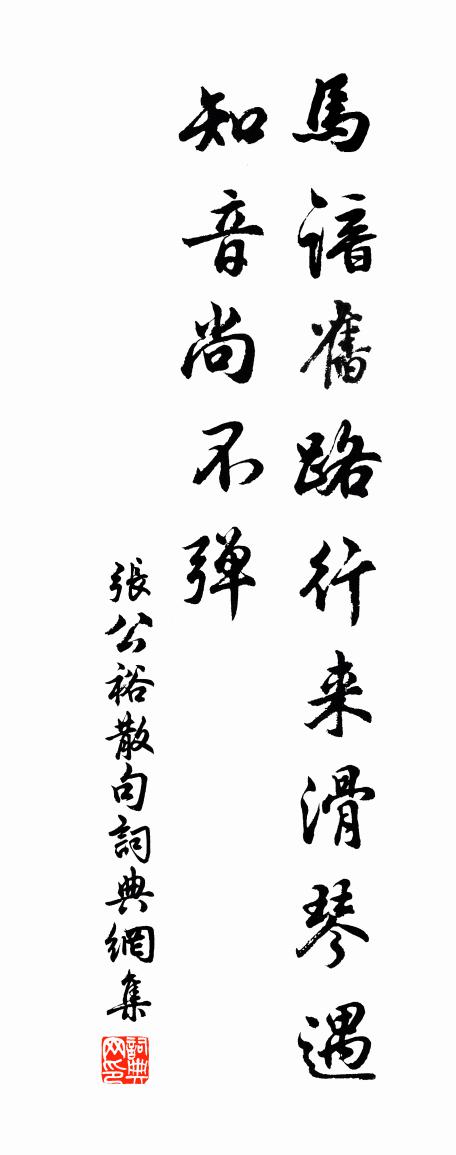 馬諳舊路行来滑琴遇
知音尚不弹
張公裕散句詞典網集
詞典网印